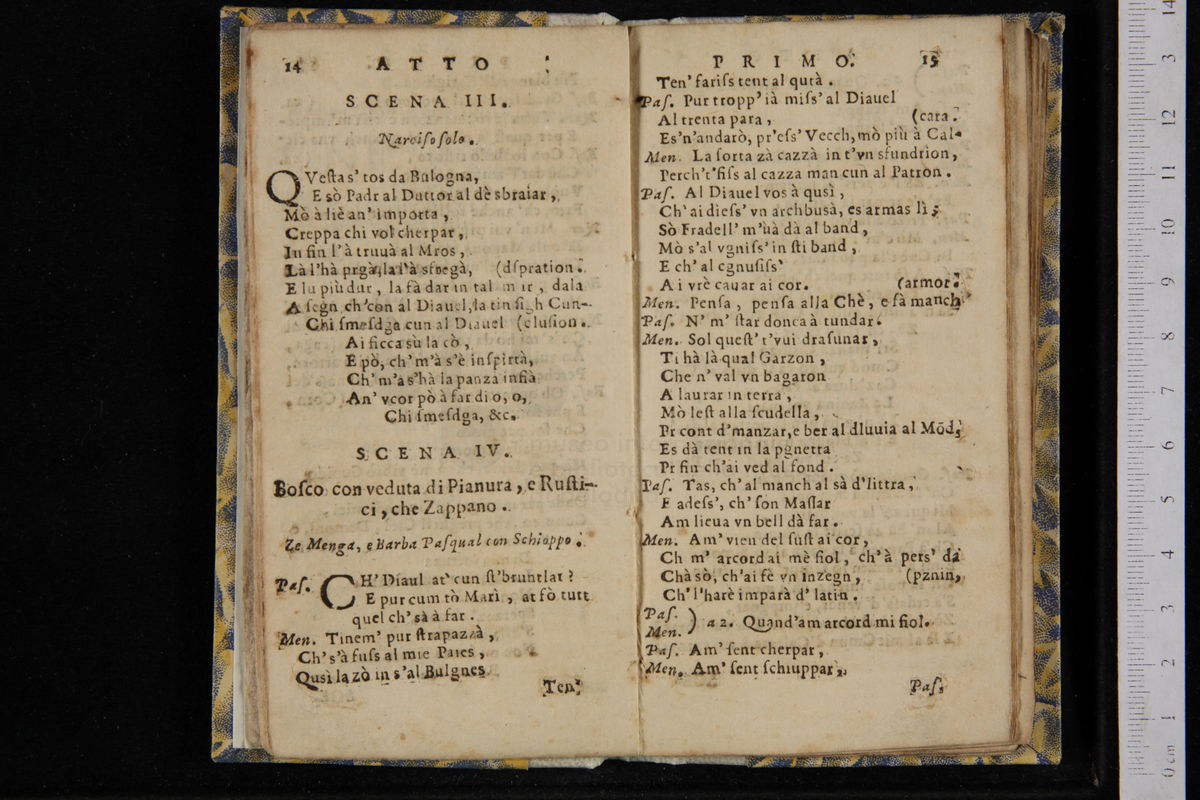 14 ATTO
SCENA III.
Narciso solo.
QVesta s' tos da Bulogna,
E sò Padr al Duttor al dè sbraiar,
Mò à liè an' importa,
Creppa chi vol cherpar,
In fin l'à truuà al Mros,
Là l'hà prgà, la l'à sfregà, (dspration.
E lu più dur, la fà dar in tal mir, dala
A segn ch'con al Diauel, la tin figh Cun-
Chi smesdga cun al Diauel (clusion.
Ai ficca sù la cò,
E pò, ch'm'à s'è inspirtà,
Ch' m'a s'hà la panza infià
An' vcor pò à far di o, o,
Chi smesdga, &c.
SCENA IV.
Bosco con veduta di Pianura, e Rusti-
ci, che Zappano.
Ze Menga, e Barba Pasqual con Schioppo.
Pas. CH' Diaul at' cun st'bruntlat?
E pur cum tò Marì, at fò tutt
quel ch' sà à far.
Men. Tinem' pur strapazzà,
Ch' s'à fuss al mie Paies,
Qusì la zò in s'al Bulgnes
Ten'
PRIMO. 15
Ten' fariss tent al qutà.
Pas. Pur tropp' ià miss' al Diauel
Al trenta para, (cara.
Es'n'andarò, pr'ess' Vecch, mò più à Cal-
Men. La sorta zà cazzà in t'vn sfundrion,
Perch't'fiss al cazza man cun al Patron.
Pas. Al Diauel vos à qusì,
Ch' ai diess' vn archbusà, es armas lì;
Sò Fradell' m'uà dà al band,
Mò s'al vgniss' in sti band,
E ch' al cgnusiss'
A i vrè cauar ai cor. (armor.
Men. Pensa, pensa alla Chè, e fà manch
Pas. N' m' star donca à tundar.
Men. Sol quest' t'vui drasunar,
Ti hà là qual Garzon,
Che n' val vn bagaron
A laurar in terra,
Mò lest alla scudella,
Pr cont d'manzar, e ber al dluuia al Mōd,
Es dà tent in la pgnetta
Pr fin ch'ai ved al fond.
Pas. Tas, ch'al manch al sà d'littra,
E adess', ch' son Masslar
Am lieua vn bell dà far.
Men. Am' vien del sust ai cor,
Ch m' arcord ai mè fiol, ch'à pers' da
Chà sò, ch'ai fè vn inzegn, (pznin,
Ch' l'harè imparà d' latin.
Pas.
Men. ) a 2. Quand'am arcord mi fiol.
Pas. Am' sent cherpar,
Men. Am' sent schiuppar,
Pas.